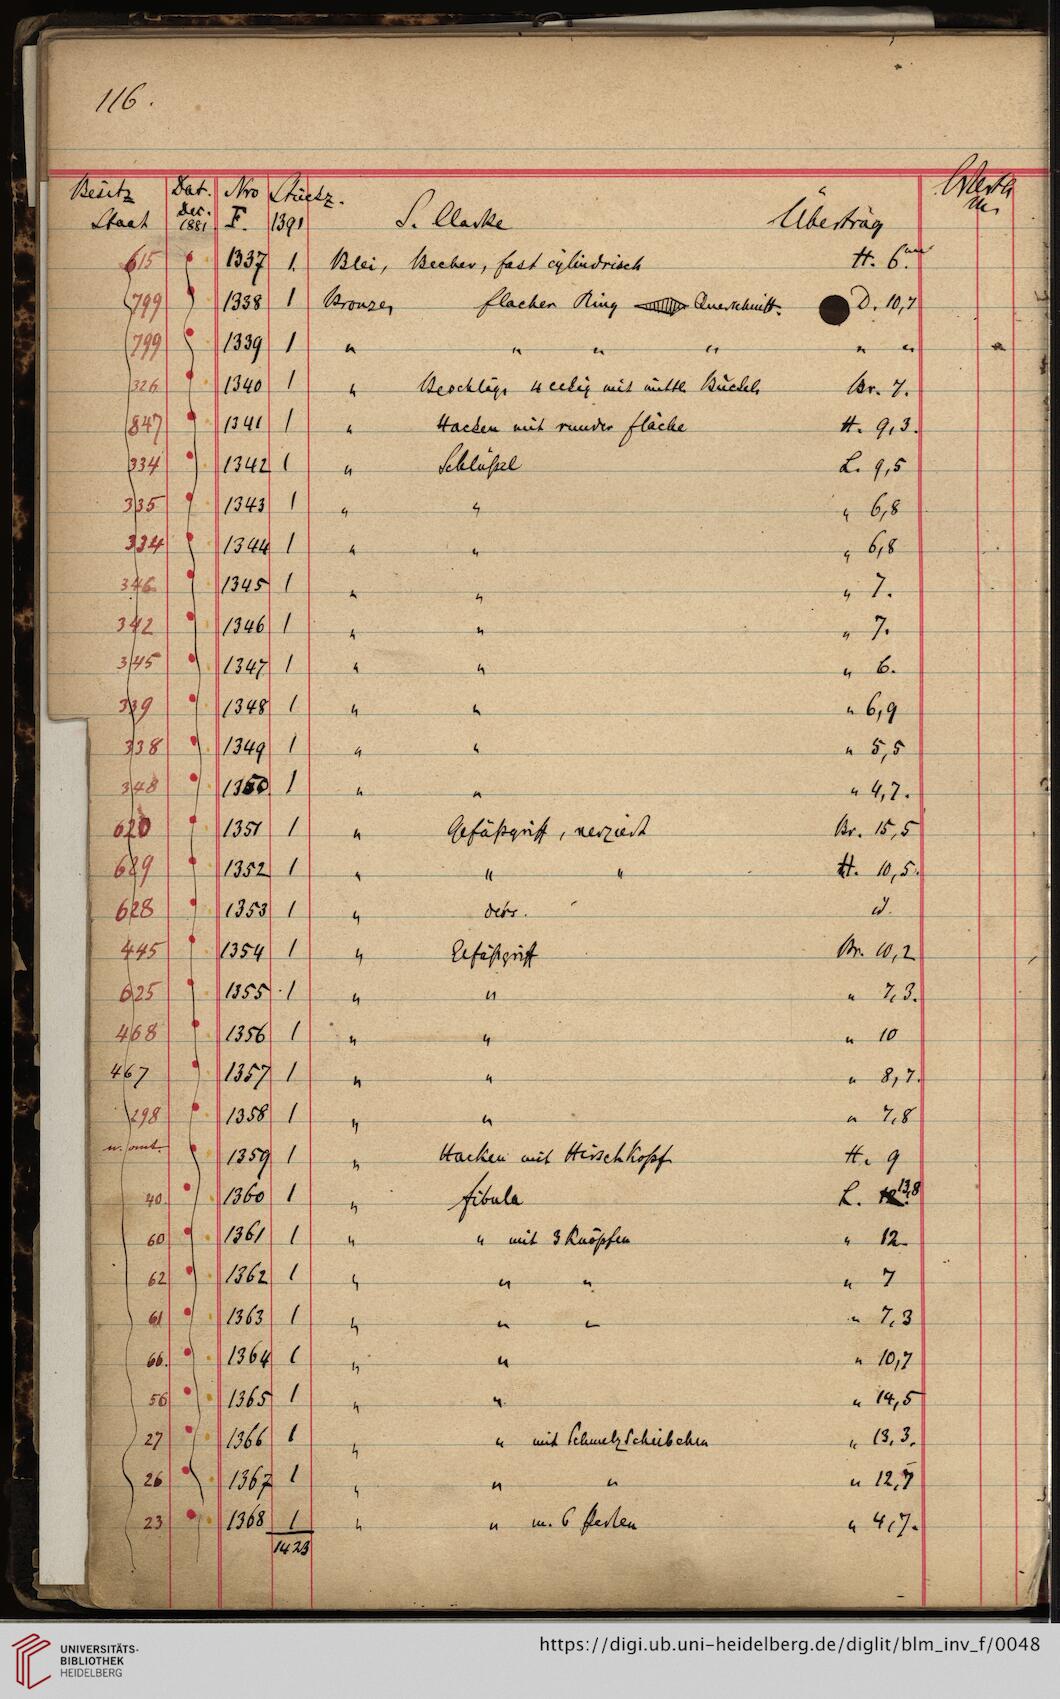 116.
Besitz Dat. Nro Stückz.
Staat Dec. 1881 F. 1391 S. Marke Übertrag
615 1337 1. Blei, Becher, fast cylindrisch H. 6.
799 1338 1 Bronze, flacher Ring Querschnitt. D. 10,7
799 1339 1 " " " " " "
326 1340 1 " Beschläge 4 eckig mit Br. 7.
847 1341 1 " Hacken mit runder fläche H. 9,3.
334 1342 1 " Schlüßel L. 9,5
335 1343 1 " " " 6,8
334 1344 1 " " " 6,8
346 1345 1 " " " 7.
342 1346 1 " " " 7.
345 1347 1 " " " 6.
339 1348 1 " " " 6,9
338 1349 1 " " " 5,5
348 1350 1 " " " 4,7.
620 1351 1 " Gefäßgriff, verziert Br. 15,5
629 1352 1 " " " H. 10,5.
628 1353 1 " id.
445 1354 1 " Gefäßgriff Br. 10,2
625 1355 1 " " " 7,3.
468 1356 1 " " " 10
467 1357 1 " " " 8,7.
298 1358 1 " " " 7,8
1359 1 " Hacken mit Hirschkopf H. 9
40. 1360 1 " fibula L. 13,8
60 1361 1 " " mit 3 Knöpfen " 12
62 1362 1 " " " " 7
61 1363 1 " " " " 7,3
66. 1364 1 " " " 10,7
56 1365 1 " " " 14,5
27 1366 1 " " mit Schmelzscheibchen " 13,3.
26 1367 1 " " " " 12,7
23 1368 1 " " m. 6 Perlen " 4,7.
1423
UNIVERSITÄTS-
BIBLIOTHEK
HEIDELBERG
https://digi.ub.uni-heidelberg.de/diglit/blm_inv_f/0048